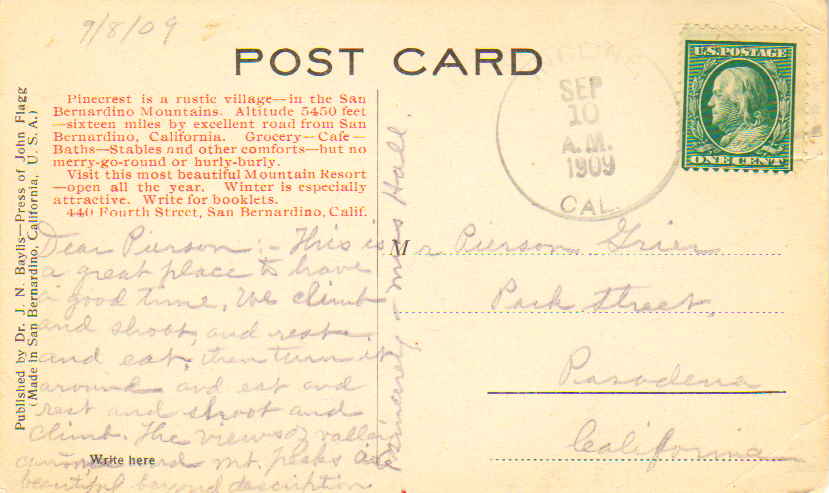 9/8/09
POST CARD
U.S. POSTAGE
ONE CENT
SEP
10
A.M.
1909
CAL.
Pinecrest is a rustic village—in the San
Bernardino Mountains. Altitude 5450 feet
—sixteen miles by excellent road from San
Bernardino, California. Grocery—Cafe—
Baths—Stables and other comforts—but no
merry-go-round or hurly-burly.
Visit this most beautiful Mountain Resort
—open all the year. Winter is especially
attractive. Write for booklets.
440 Fourth Street, San Bernardino, Calif.
Published by Dr. J. N. Baylis—Press of John Flagg
(Made in San Bernardino, California, U. S. A.)
Dear Pierson:- This is
a great place to have
a good time. We climb
and shoot, and rest
and eat, then turn it
around and eat and
rest and shoot and
climb. The views of valley
and mt. peaks are
beautiful beyond description
Write here
Sincerely - Miss Hall.
Mr Pierson Grier
Park Street,
Pasadena
California